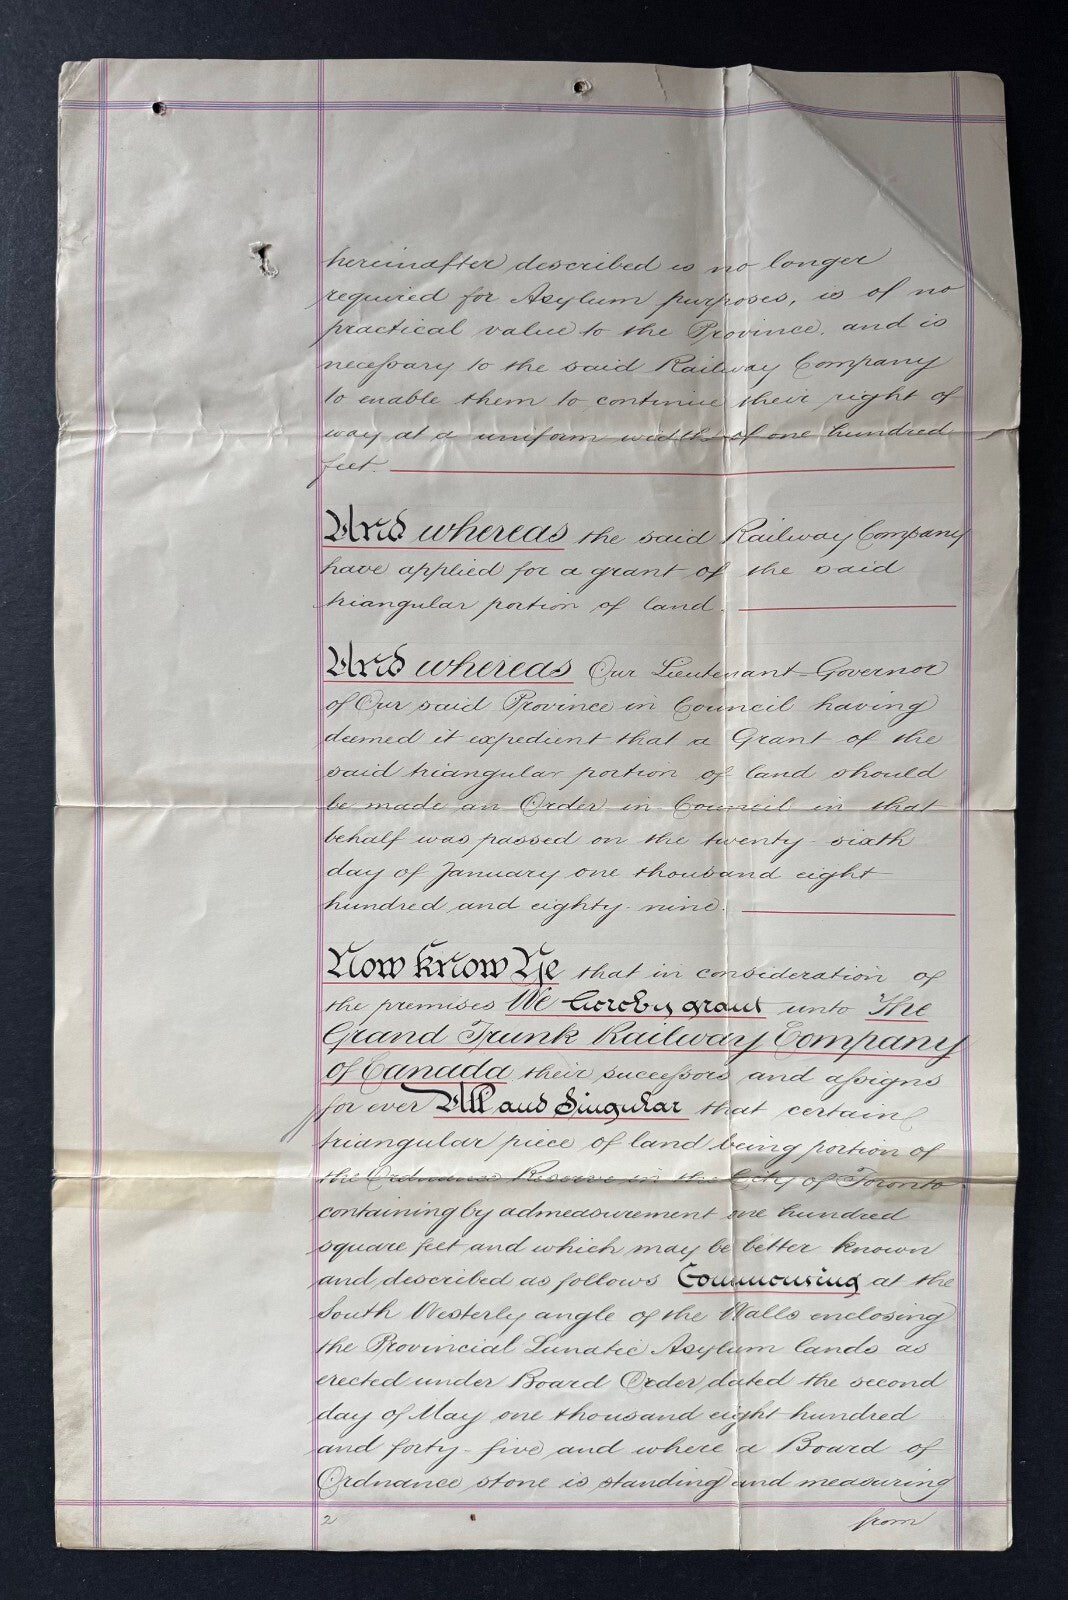 hereinafter described is no longer
required for Asylum purposes, is of no
practical value to the Province, and is
necessary to the said Railway Company
to enable them to continue their right of
way at a uniform width of one hundred
feet.
And whereas the said Railway Company
have applied for a grant of the said
triangular portion of land.
And whereas Our Lieutenant-Governor
of Our said Province in Council having
deemed it expedient that a Grant of the
said triangular portion of land should
be made an Order in Council in that
behalf was passed on the twenty-sixth
day of January one thousand eight
hundred and eighty-nine.
Now Know Ye that in consideration of
the premises We hereby grant unto The
Grand Trunk Railway Company
of Canada their successors and assigns
for ever All and Singular that certain
triangular piece of land being portion of
the Ordnance Reserve in the City of Toronto
containing by admeasurement one hundred
square feet and which may be better known
and described as follows Commencing at the
South Westerly angle of the Walls enclosing
the Provincial Lunatic Asylum lands as
erected under Board Order dated the second
day of May one thousand eight hundred
and forty-five and where a Board of
Ordnance stone is standing and measuring
2 from